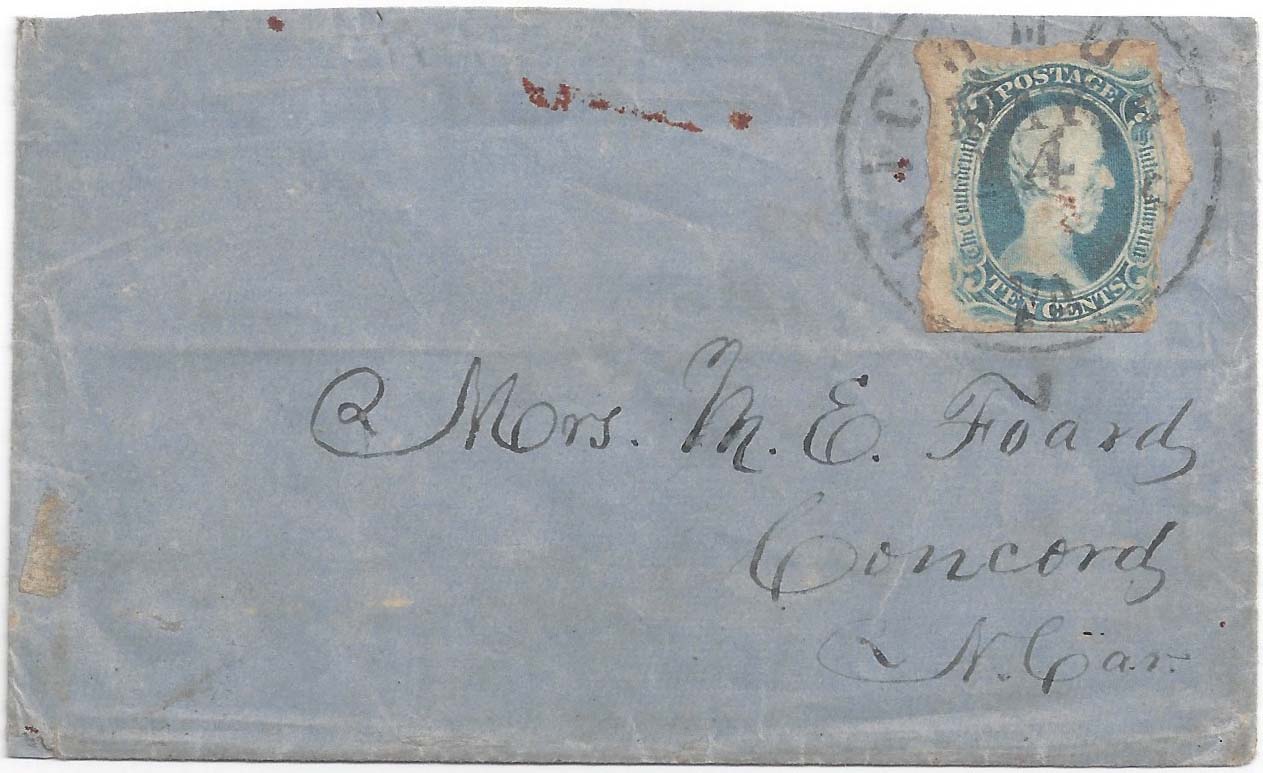 RICHMOND
4
POSTAGE
The Confederate States of America
TEN CENTS
Mrs. M. E. Foard
Concord
N. Car.